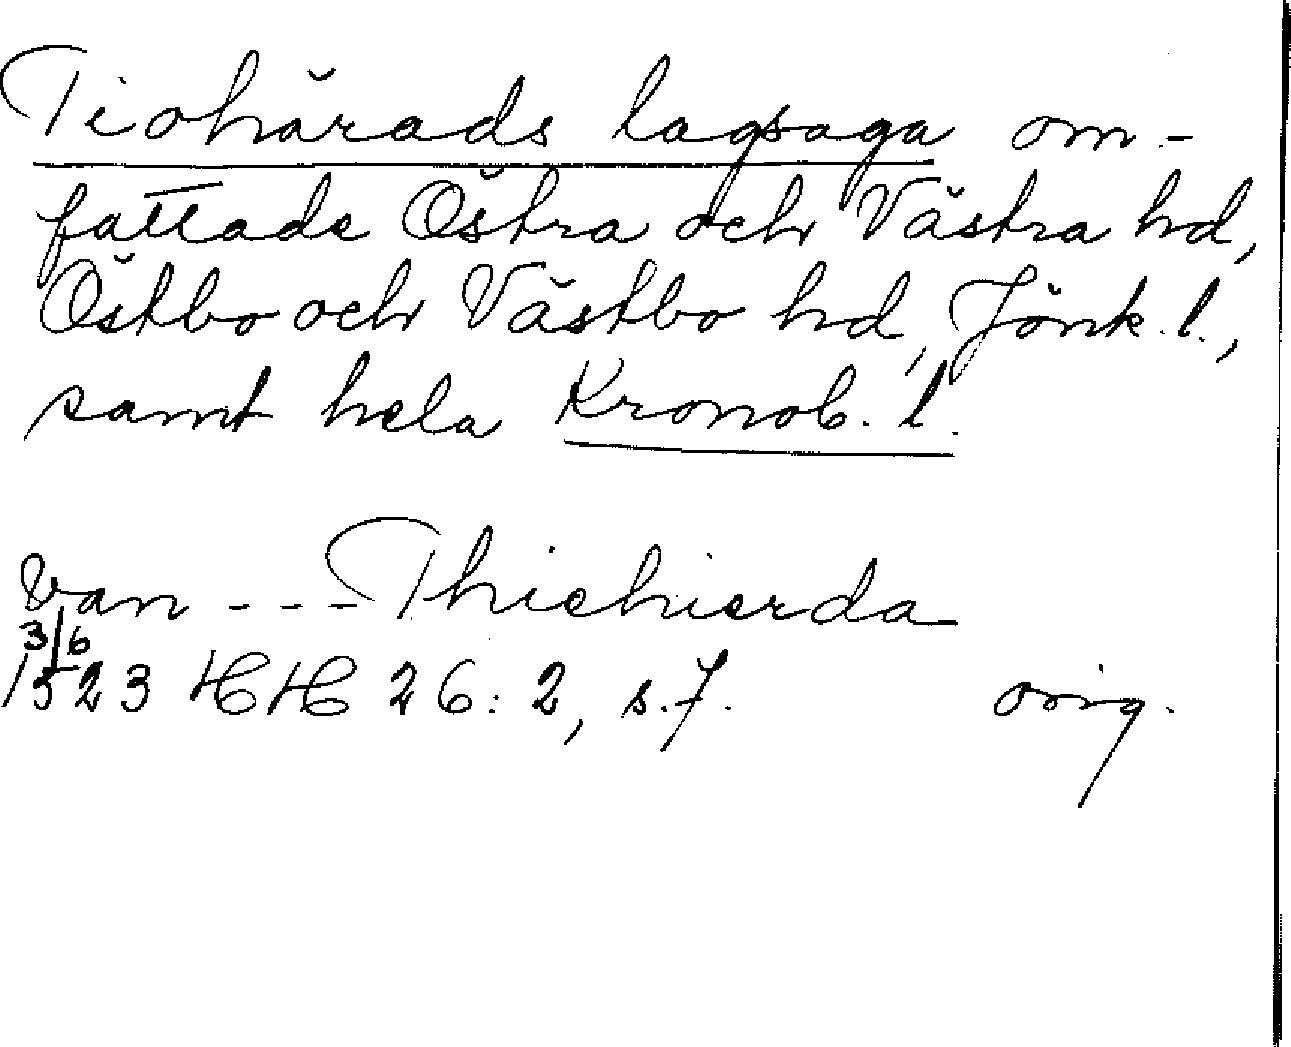 Tiohärads lagsaga om-
fattade Östra och Västra hd,
Östbo och Västbo hd, Jönk. l.,
samt hela Kronob. l.
van - - - Thiehierda
3/6
1523 HH 26: 2, s. 7. orig.